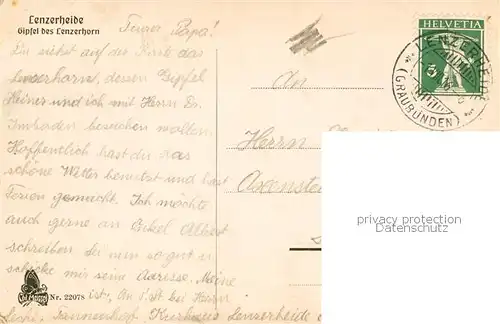 Lenzerheide
Gipfel des Lenzerhorn
Teurer Papa!
Du siehst auf der Karte das
Lenzerhorn, dessen Gipfel
Heiner und ich mit Herrn Dr.
Imboden besuchen wollen.
Hoffentlich hast du das
schöne Wetter benutzt und hast
Ferien gemacht. Ich möchte
auch gerne an Onkel Albert
schreiben. Sei nun so gut u.
schicke mir seine Adresse. Meine
ist: An P. St. bei Herrn
Tannenhof Kurhaus Lenzerheide
Nr. 22078
HELVETIA
LENZERHEIDE
(GRAUBÜNDEN)
An
Herrn
Axenste
privacy protection
Datenschutz